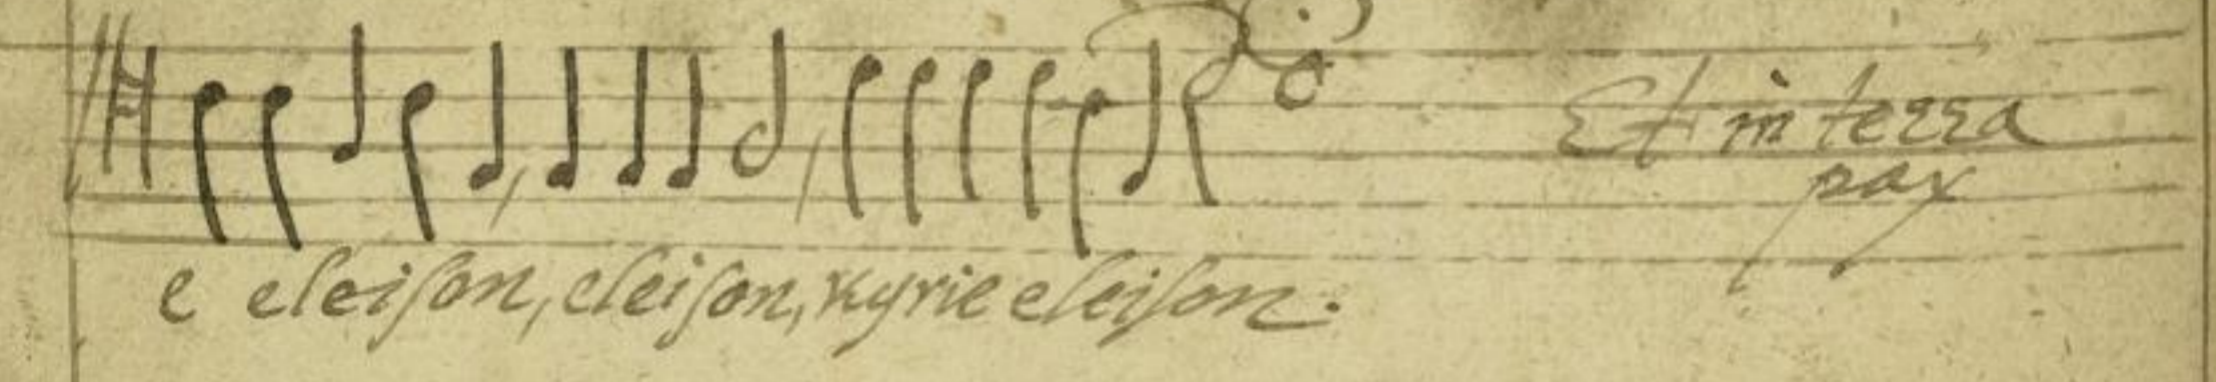 Et in terra
pax
e eleison, eleison, Kyrie eleison.